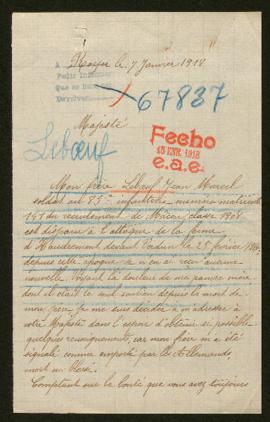 le 7 Janvier 1918
A
Pedir Inform
Que se han
Devolver
67837
Majesté
Fecho
15 ENE. 1918
e.a.e.
Lebœuf
Mon frère Lebœuf Jean Marcel
soldat au 85e infanterie numéro matricule
147 du recrutement de classe 1908
est disparu à l'attaque de la ferme
d'Haudremont devant Verdun le 25 février
depuis cette époque l'on a reçu aucune
nouvelle. Voyant la douleur de ma pauvre mère
dont il était le seul soutien depuis la mort de
mon père je me suis décidée à m'adresser à
votre Majesté dans l'espoir d'obtenir si possible
quelques renseignements, car mon frère m'a été
signalé comme emporté par les Allemands
mort ou blessé.
Comptant sur la bonté que vous avez toujours